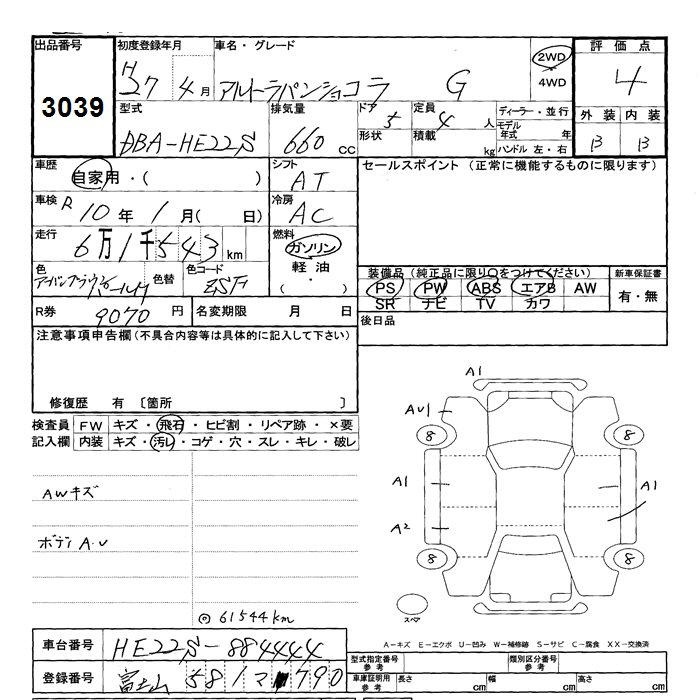 出品番号 初度登録年月 車名・グレード 2WD 4WD 評価点
3039 H27年4月 アルトラパンショコラ G 4
型式 排気量 ドア 5 定員 4人 ディーラー・並行 外装 内装
DBA-HE22S 660cc 形状 積載 kg モデル年式 年 ハンドル 左・右 B B
車歴 自家用・( ) シフト AT セールスポイント (正常に機能するものに限ります)
車検 R10年1月( 日) 冷房 AC
走行 6万1千543km 燃料 ガソリン 軽油
色 色替 色コード ZSF 装備品(純正品に限り○をつけてください) 新車保証書
PS PW ABS エアB AW 有・無
SR ナビ TV カワ
R券 9070円 名変期限 月 日 後日品
注意事項申告欄(不具合内容等は具体的に記入して下さい)
修復歴 有 〔箇所 〕
検査員 FW キズ・飛石・ヒビ割・リペア跡・×要
記入欄 内装 キズ・汚レ・コゲ・穴・スレ・キレ・破レ
A1
AU1
8 8
AWキズ
A1 A1
ボディ A.U
A2
8 8
◎61544km
スペア
A-キズ E-エクボ U-凹み W-補修跡 S-サビ C-腐食 XX-交換済
車台番号 HE22S-884444
型式指定番号 参考 類別区分番号 参考
登録番号 富士山 581 マ 790
車庫証明用 参考 長さ cm 幅 cm 高さ cm